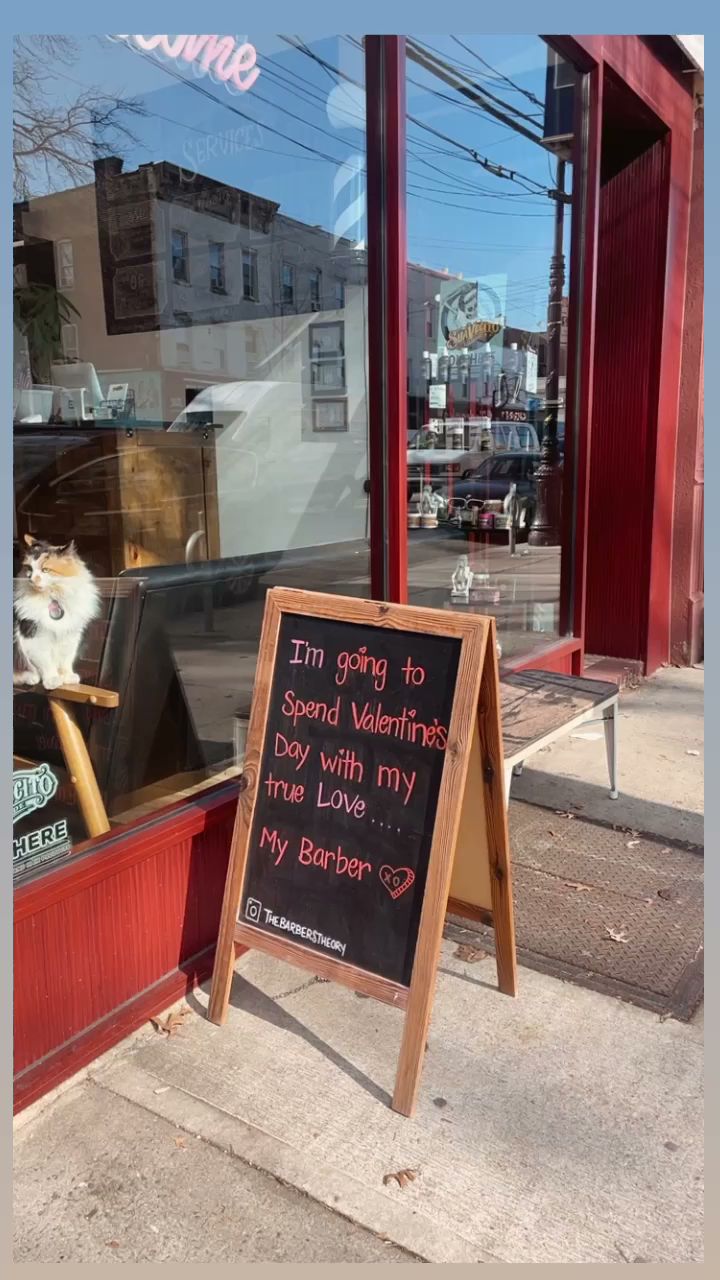 ome
SERVICES
SUAVECITO
I'm going to
Spend Valentine's
Day with my
true Love....
My Barber XO
THEBARBERSTHEORY
CITO
HERE